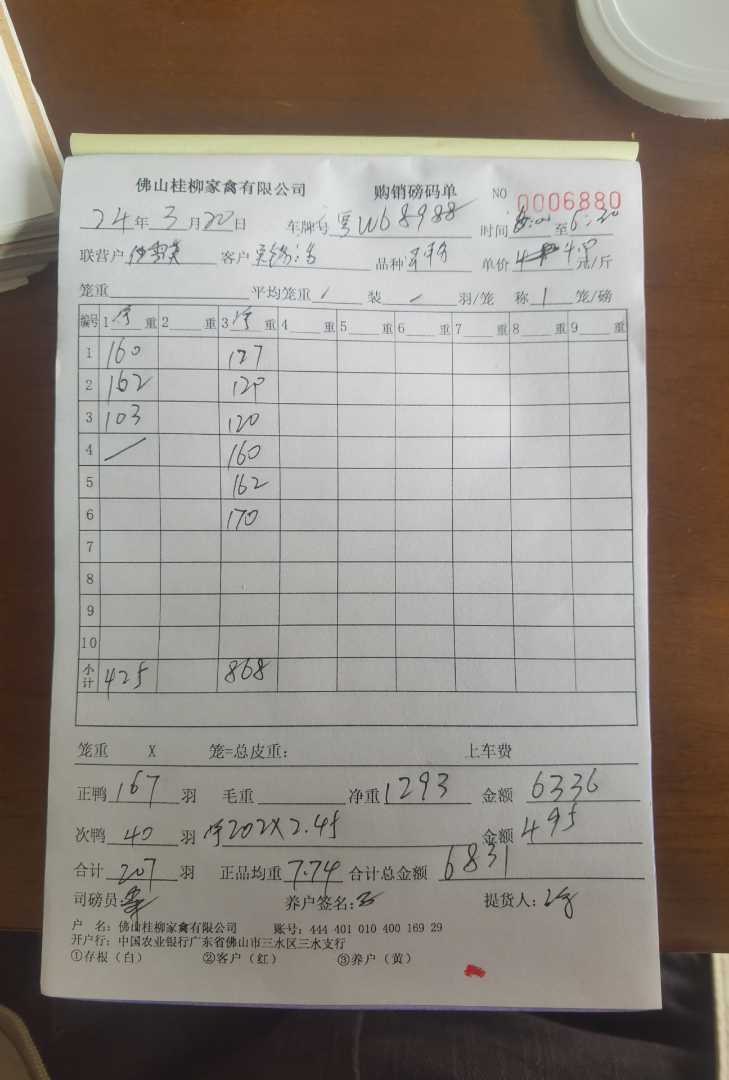 佛山桂柳家禽有限公司 购销磅码单 NO 0006880
24年3月20日 车牌号粤W68988 时间 至6:20
联营户 客户 品种 单价 4.9元/斤
笼重 平均笼重/ 装/羽/笼 称1笼/磅
编号 1净重 2重 3净重 4重 5重 6重 7重 8重 9重
1 160 127
2 162 120
3 103 120
4 / 160
5 162
6 170
7
8
9
10
小计 425 868
笼重 X 笼=总皮重: 上车费
正鸭167羽 毛重 净重1293 金额6336
次鸭40羽 净202X2.45 金额495
合计207羽 正品均重7.74 合计总金额6831
司磅员: 养户签名: 提货人:
户 名: 佛山桂柳家禽有限公司 账号: 444 401 010 400 169 29
开户行: 中国农业银行广东省佛山市三水区三水支行
①存根(白) ②客户(红) ③养户(黄)